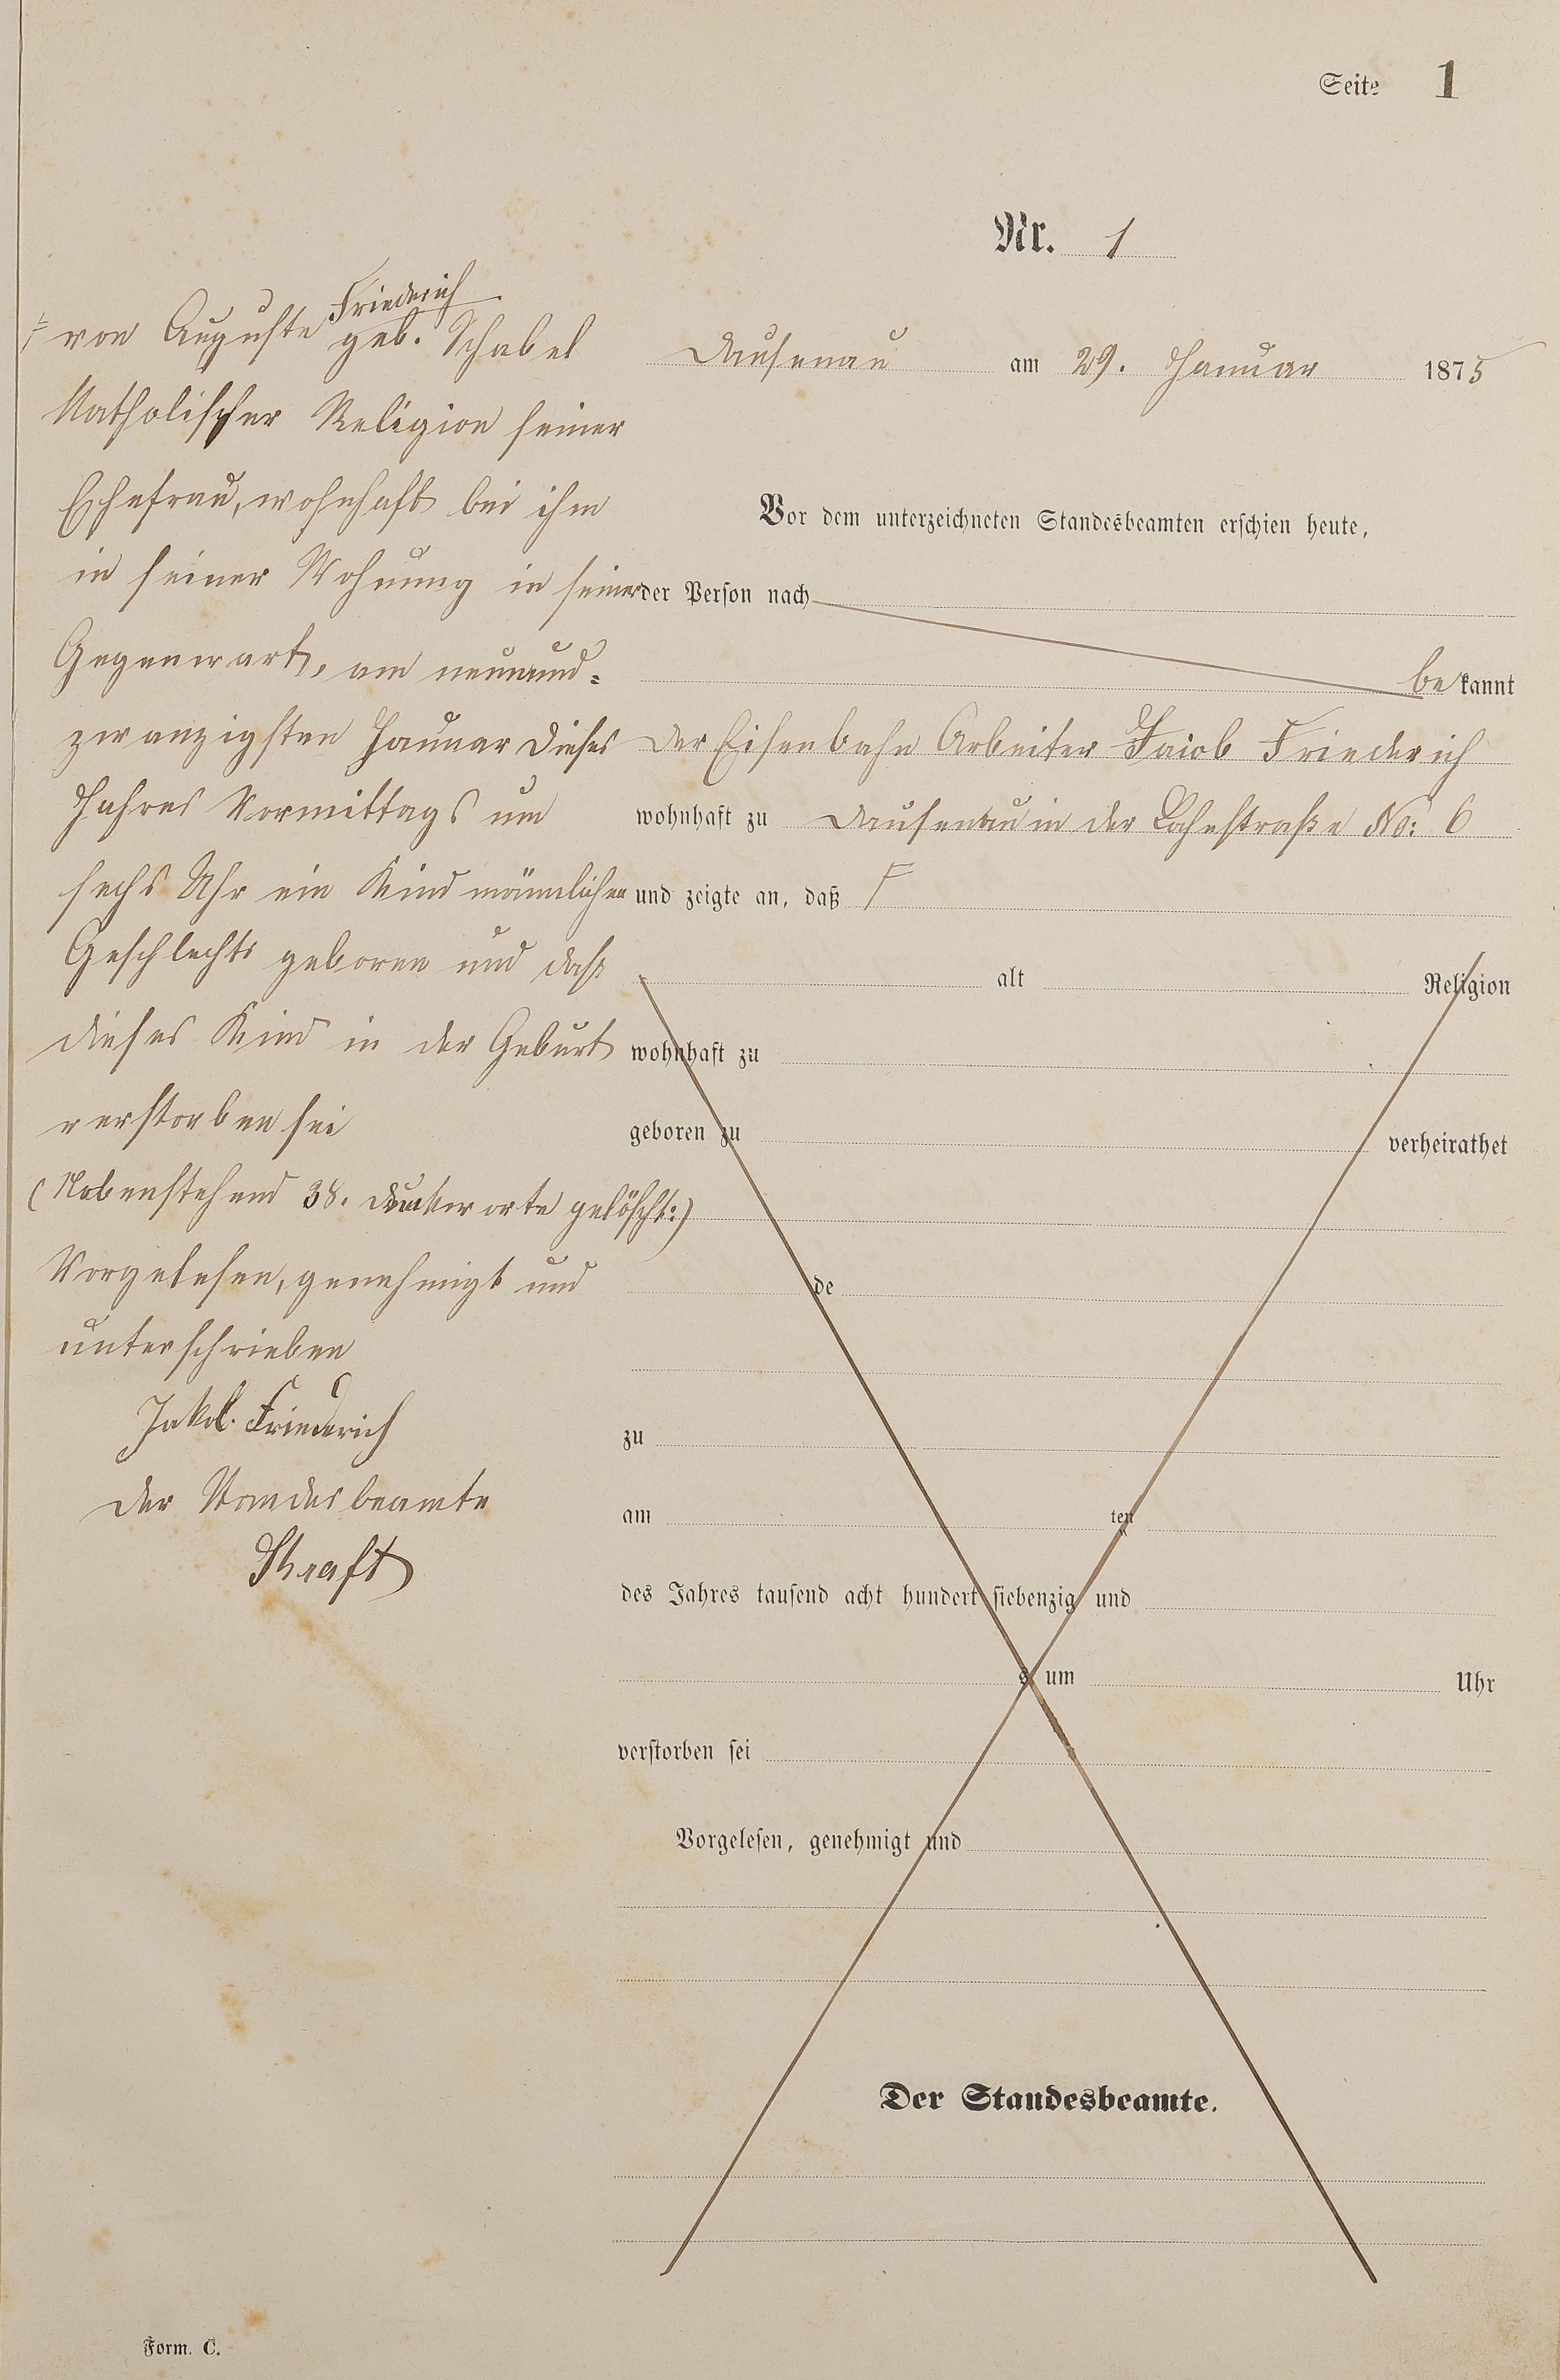 Seite 1
Nr. 1
Dausenau am 29. Januar 1875
Vor dem unterzeichneten Standesbeamten erschien heute,
der Person nach
bekannt
der Eisenbahn Arbeiter Jacob Friederich
wohnhaft zu Dausenau in der Lahnstraße No: 6
und zeigte an, daß F
alt Religion
wohnhaft zu
geboren zu verheirathet
de
zu
am ten
des Jahres tausend acht hundert siebenzig und
s um Uhr
verstorben sei
Vorgelesen, genehmigt und
Der Standesbeamte.
Friederich
F von Auguste geb. Schabel
Katholischer Religion seiner
Ehefrau, wohnhaft bei ihm
in seiner Wohnung in seiner
Gegenwart, am neunund-
zwanzigsten Januar dieses
Jahres Vormittags um
sechs Uhr ein Kind männlichen
Geschlechts geboren und daß
dieses Kind in der Geburt
verstorben sei
(Nebenstehend 38. Druckworte gelöscht:)
Vorgelesen, genehmigt und
unterschrieben
Jakob Friederich
Der Standesbeamte
Form. C.